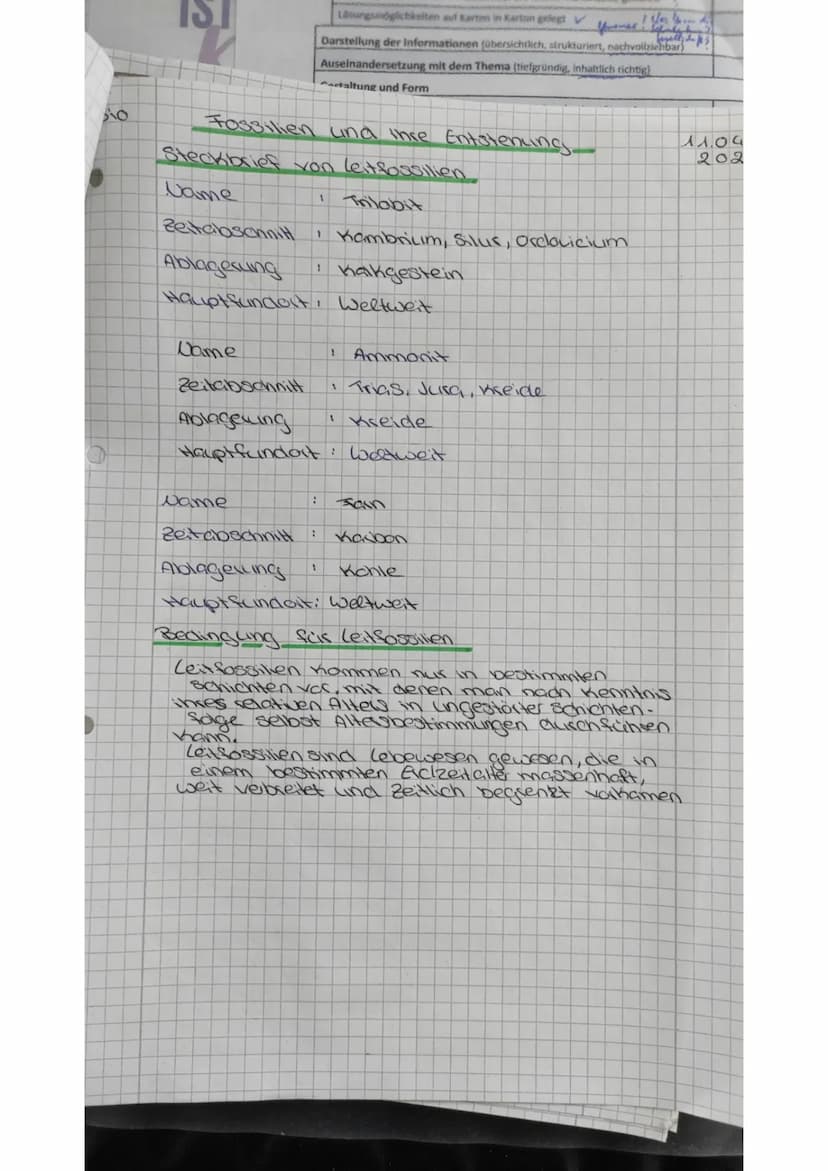 IST
Lösungsmöglichkeiten auf Karten in Karton gelegt ✓
Darstellung der Informationen (übersichtlich, strukturiert, nachvollziehbar)
Auseinandersetzung mit dem Thema (tiefgründig, inhaltlich richtig)
Gestaltung und Form
Bio
Fossilien und ihre Entstehung
11.04
202
Steckbrief von Leitfossilien
Name : Trilobit
Zeitabschnitt : Kambrium, Silur, Ordovicium
Ablagerung : Kalkgestein
Hauptfundort : Weltweit
Name : Ammonit
Zeitabschnitt : Trias, Jura, Kreide
Ablagerung : Kreide
Hauptfundort : Weltweit
Name : Farn
Zeitabschnitt : Karbon
Ablagerung : Kohle
Hauptfundort : Weltweit
Bedingung für Leitfossilien
Leitfossilien kommen nur in bestimmten
Schichten vor, mit denen man nach Kenntnis
ihres relativen Alters in ungestörter Schichten-
folge selbst Altersbestimmungen durchführen
kann.
Leitfossilien sind Lebewesen gewesen, die in
einem bestimmten Erdzeitalter massenhaft,
weit verbreitet und zeitlich begrenzt vorkamen